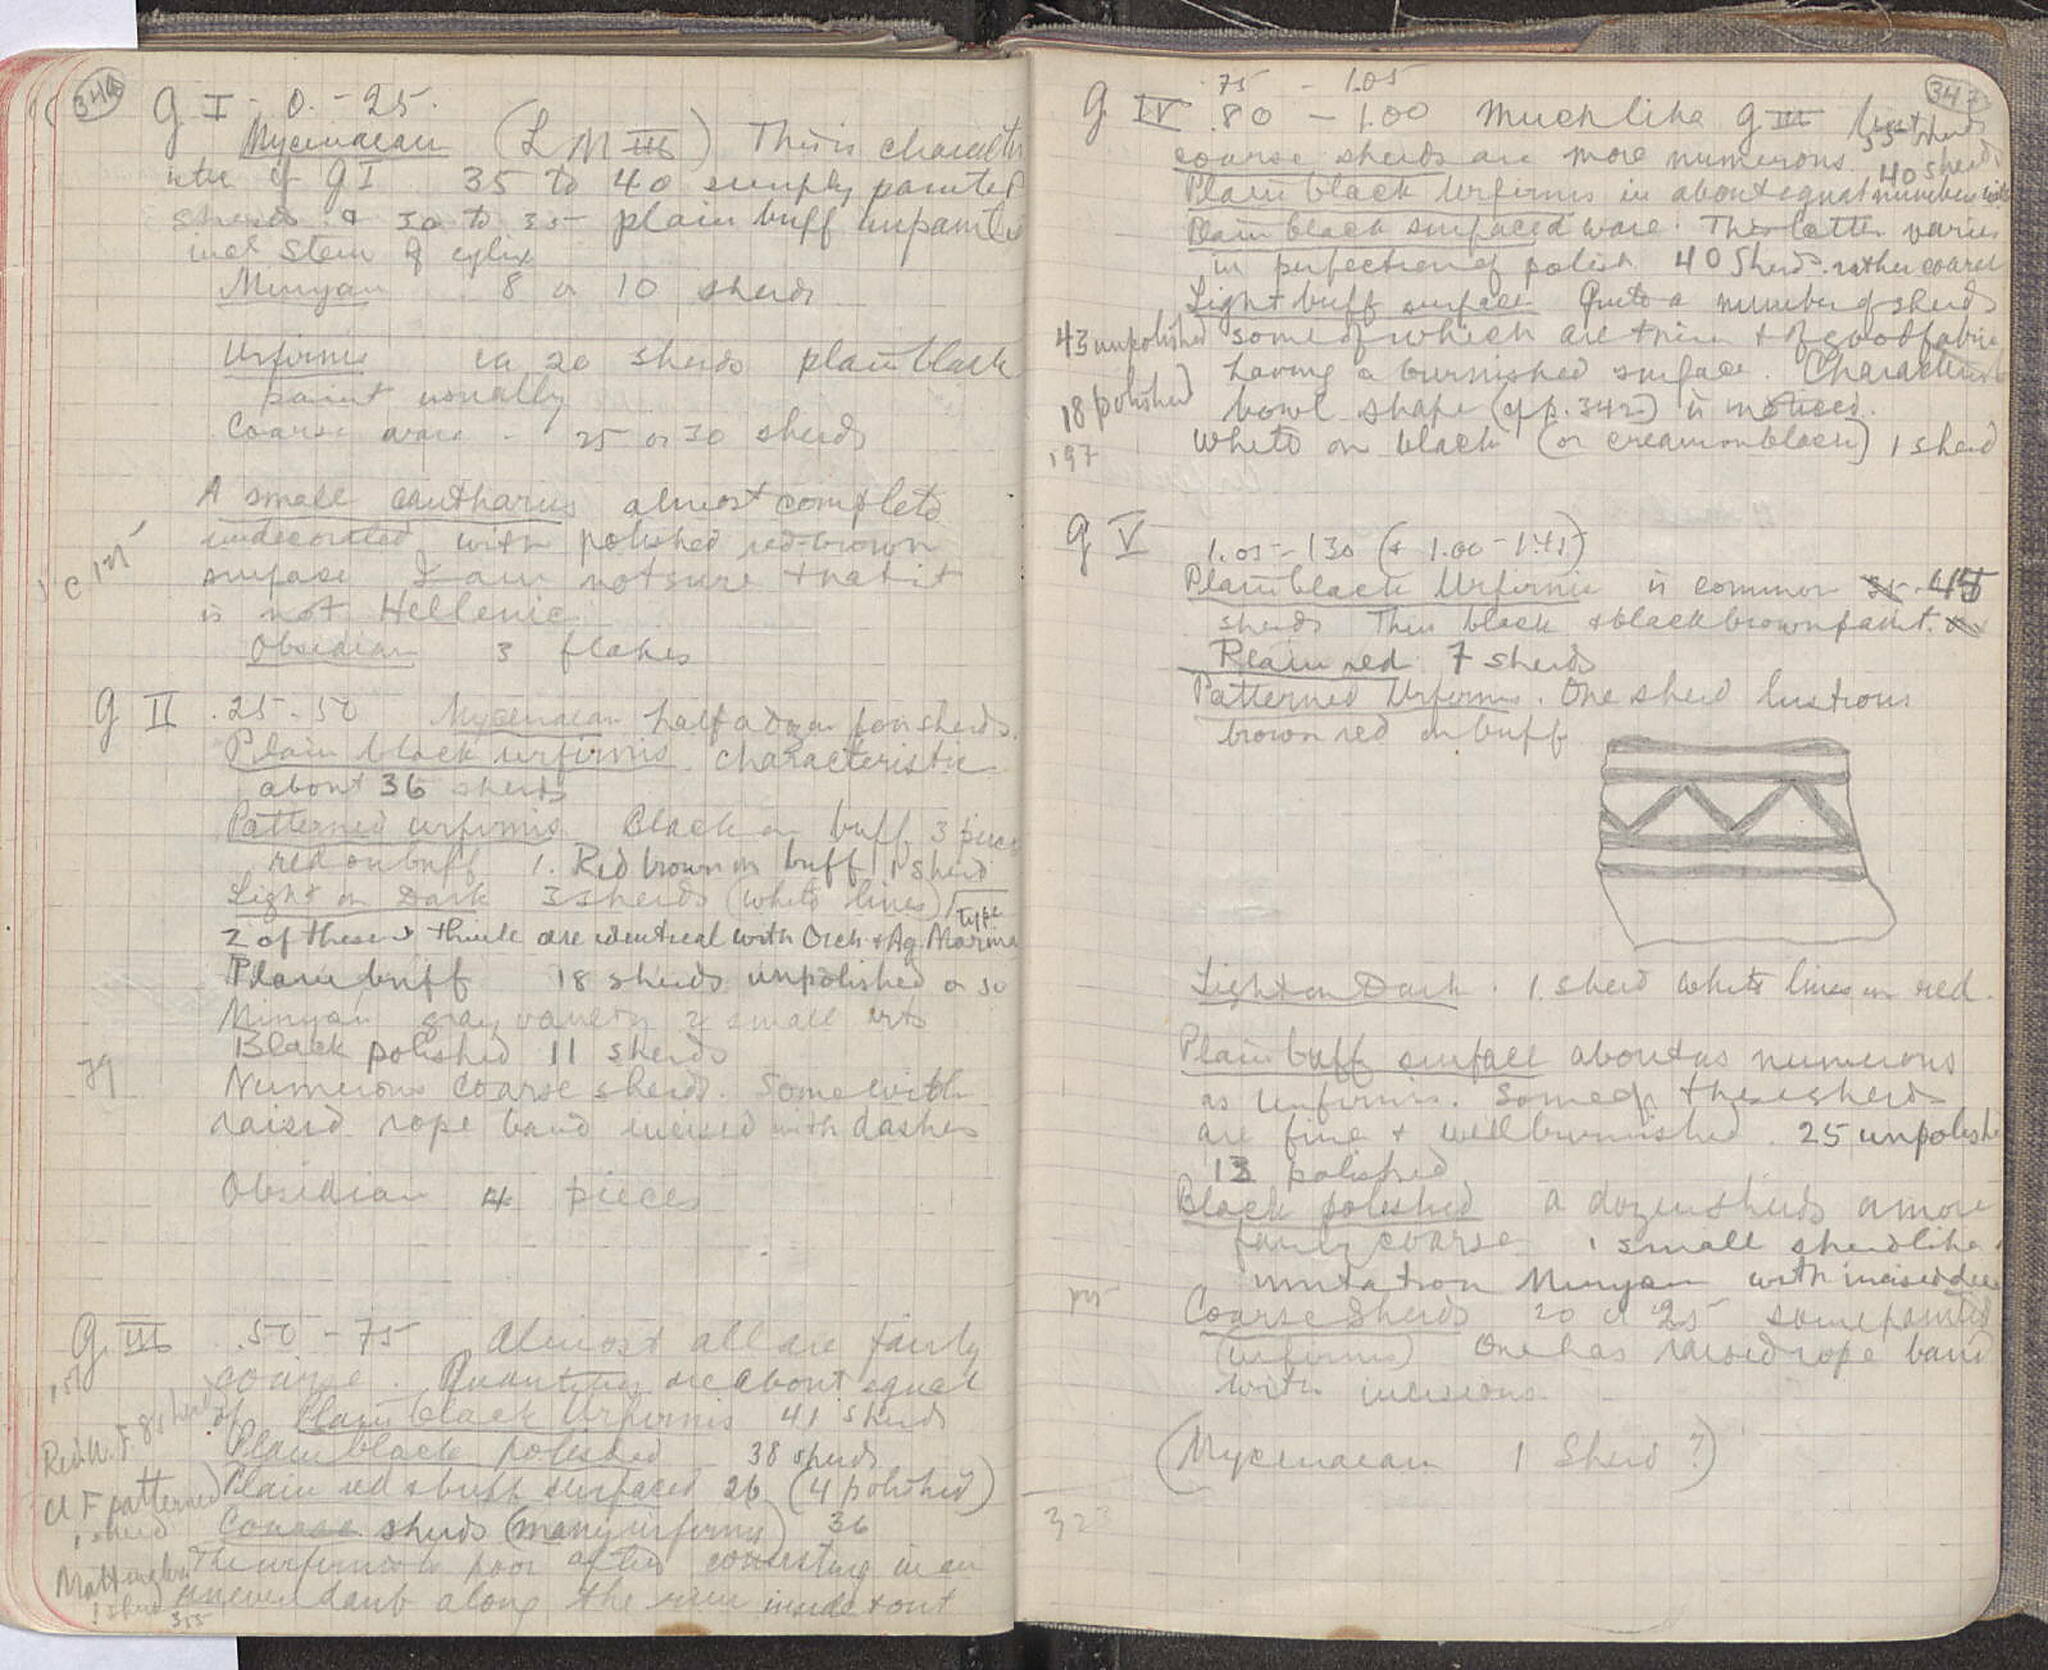 346
G I - 0. - 25.
Mycenaean (L M III) This is character
istic of G I 35 to 40 simply painted
sherds & 30 to 35 plain buff unpainted
incl stem of cylix
Minyan 8 or 10 sherds
Urfirnis ca 20 sherds plain black
paint usually
Coarse ware - 25 or 30 sherds
A small cantharus almost complete
undecorated with polished red-brown
surface I am not sure that it
is not Hellenic
Obsidian 3 flakes
G II .25-50 Mycenaean half a dozen poor sherds.
Plain black urfirnis characteristic
about 36 sherds
Patterned urfirnis Black on buff 3 pieces
red on buff 1. Red brown on buff 1 sherd
Light on Dark 3 sherds (white lines)
type
2 of these I think are identical with Orch & Ag. Marina
Plain buff 18 sherds unpolished or so
Minyan gray variety 2 small bits
Black polished 11 sherds
79
Numerous coarse sherds. Some with
raised rope band incised with dashes
Obsidian 4 pieces
G III .50 - 75 Almost all are fairly
coarse. Quantities are about equal
of Plain black Urfirnis 41 sherds
Red U. F. 8 sherds
Plain black polished 38 sherds
Plain red & buff surfaced 26 (4 polished)
U F patterned
1 sherd
Coarse sherds (many urfirnis) 36
The urfirnis is poor often consisting in an
uneven daub along the rim inside & out
1 sherd
355
347
.75 - 1.05
G IV .80 - 1.00 Much like G III but
35 sherds
coarse sherds are more numerous
40 sherds
Plain black Urfirnis in about equal numbers with
Plain black surfaced ware. This latter varies
in perfection of polish 40 Sherds. rather coarse
Light buff surface Quite a number of sherds
43 unpolished some of which are thin & of good fabric
having a burnished surface. Characteristic
18 polished bowl shape (cf p. 342) is noticed.
197
White on black (or cream on black) 1 sherd
G V 1.05-130 (& 1.00-1.45)
Plain black Urfirnis is common 35 45
sherds Thin black & black brown paint.
Plain red 7 sherds
Patterned Urfirnis. One sherd lustrous
brown red on buff
Light on Dark. 1 sherd white lines on red.
Plain buff surface about as numerous
as Urfirnis. Some of these sherds
are fine & well burnished. 25 unpolished
13 polished
Black polished a dozen sherds a more
fairly coarse 1 small sherd like
imitation Minyan with incised dec
Coarse Sherds 20 or 25 some painted
(urfirnis) One has raised rope band
with incisions
(Mycenaean 1 Sherd ?)
323